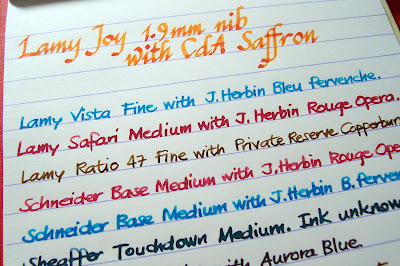 Lamy Joy 1.9mm nib
with CdA Saffron
Lamy Vista Fine with J.Herbin Bleu Pervenche.
Lamy Safari Medium with J. Herbin Rouge Opera.
Lamy Ratio 47 Fine with Private Reserve Copperbur
Schneider Base Medium with J.Herbin Rouge Ope
Schneider Base Medium with J.Herbin B. Perven
Sheaffer Touchdown Medium. Ink unknow
with Aurora Blue.